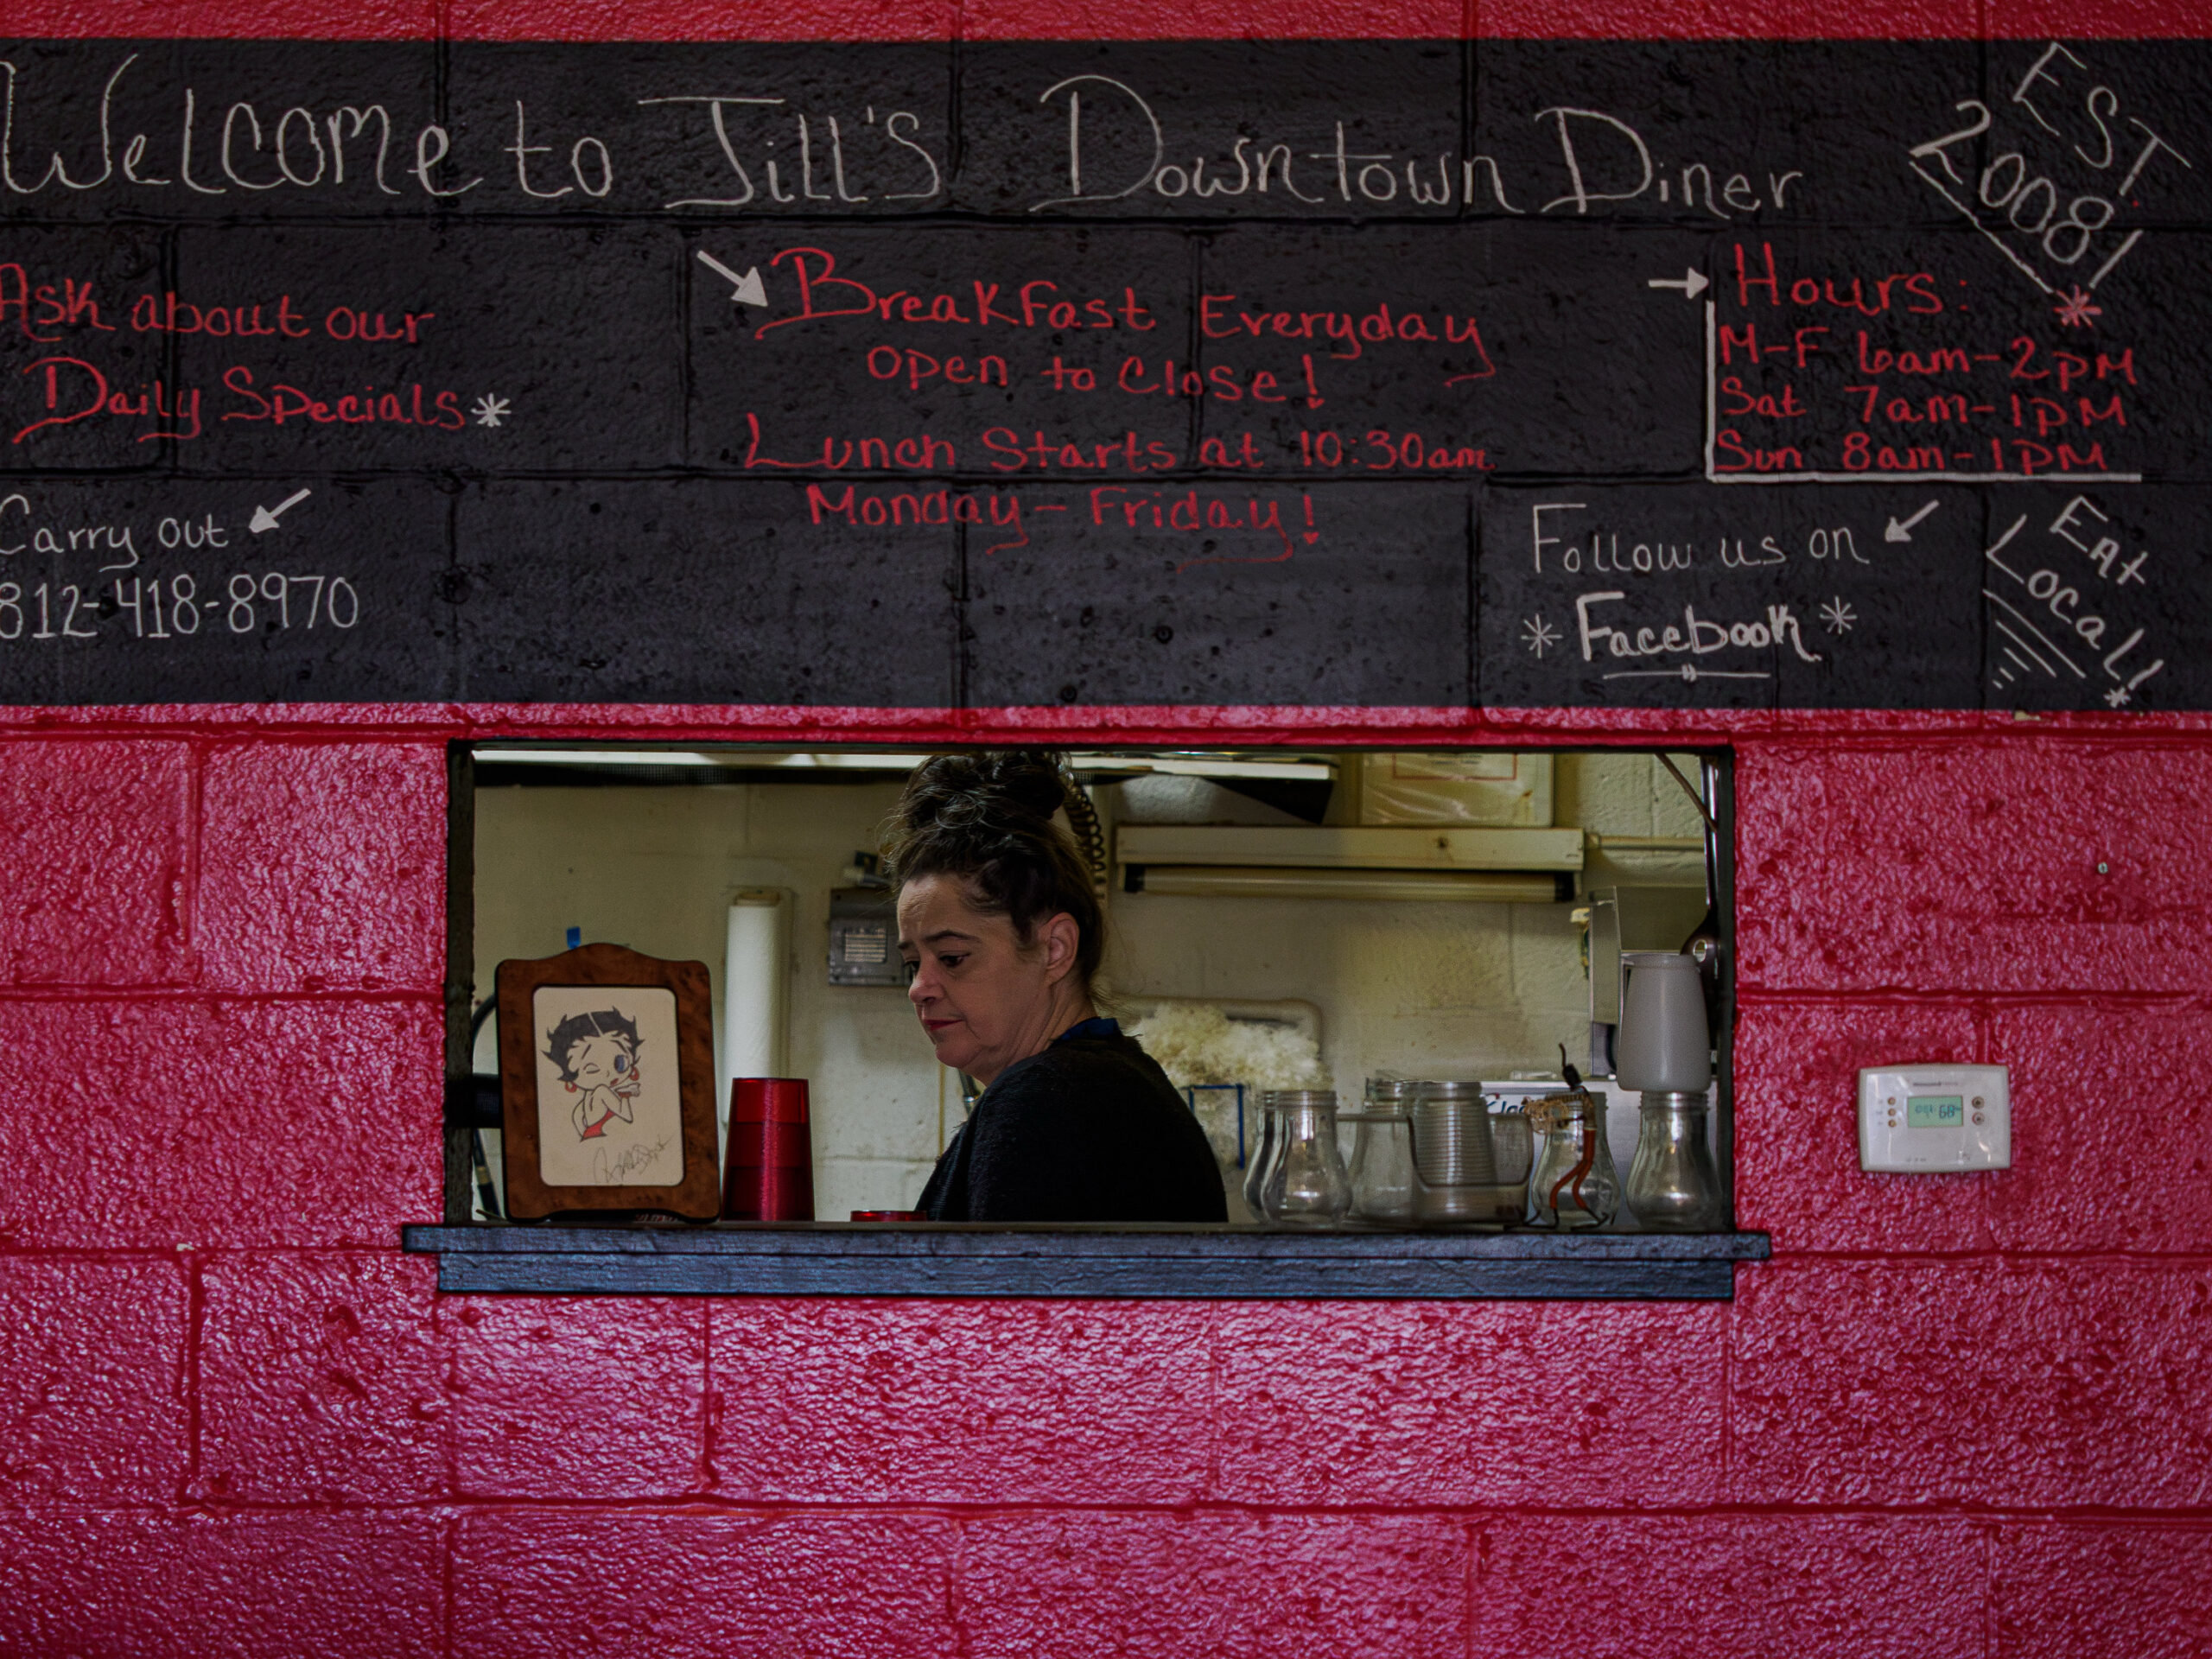 Welcome to Jill's Downtown Diner
EST
2008!
Ask about our
Daily Specials*
Breakfast Everyday
open to close!
Lunch Starts at 10:30am
Monday-Friday!
Hours:
M-F 6am-2pm
Sat 7am-1pm
Sun 8am-1pm
Carry out
812-418-8970
Follow us on
* Facebook *
Eat
Local!
68